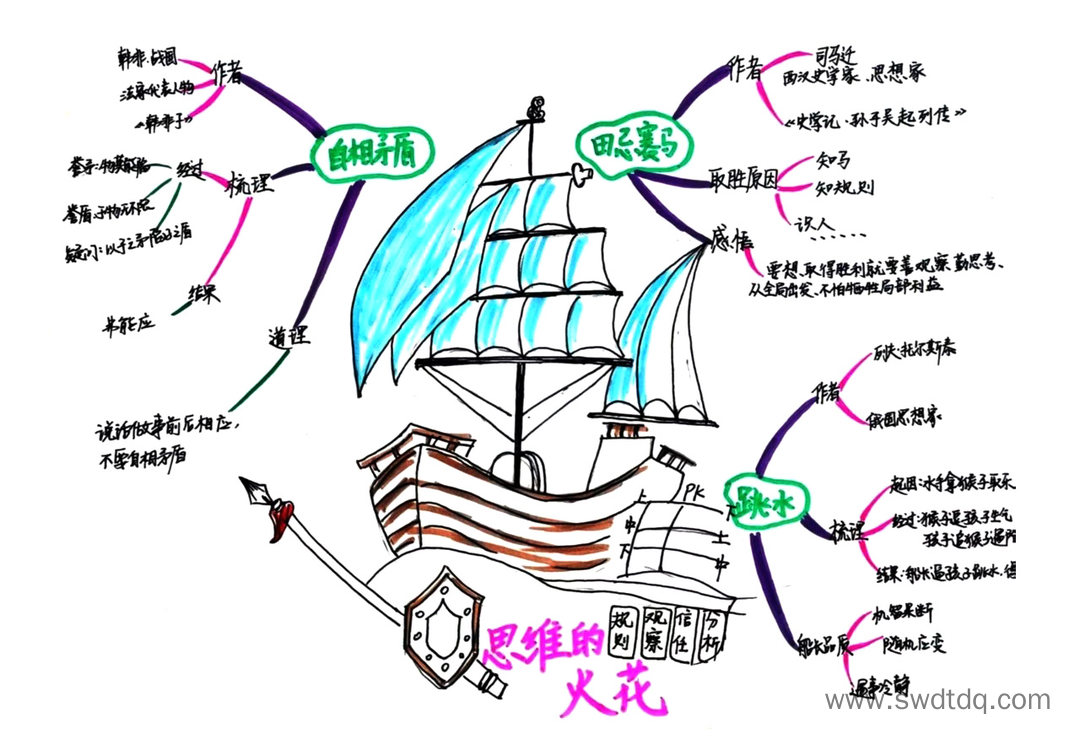 自相矛盾
作者
韩非、战国
法家代表人物
《韩非子》
梳理
经过
誉矛:物莫能陷
誉盾:于物无不陷
疑问:以子之矛陷子之盾
结果
弗能应
道理
说话做事前后相应,
不要自相矛盾
田忌赛马
作者
司马迁
西汉史学家、思想家
《史学记·孙子吴起列传》
取胜原因
知马
知规则
识人
……
感悟
要想取得胜利就要善观察、勤思考、
从全局出发、不怕牺牲局部利益
跳水
作者
列夫·托尔斯泰
俄国思想家
梳理
起因:水手拿猴子取乐
经过:猴子逗孩子生气
孩子追猴子遇险
结果:船长逼孩子跳水,得
船长品质
机智果断
随机应变
遇事冷静
上 PK 下
中 上
下 中
规则
观察
信任
分析
思维的
火花
www.swdtdq.com